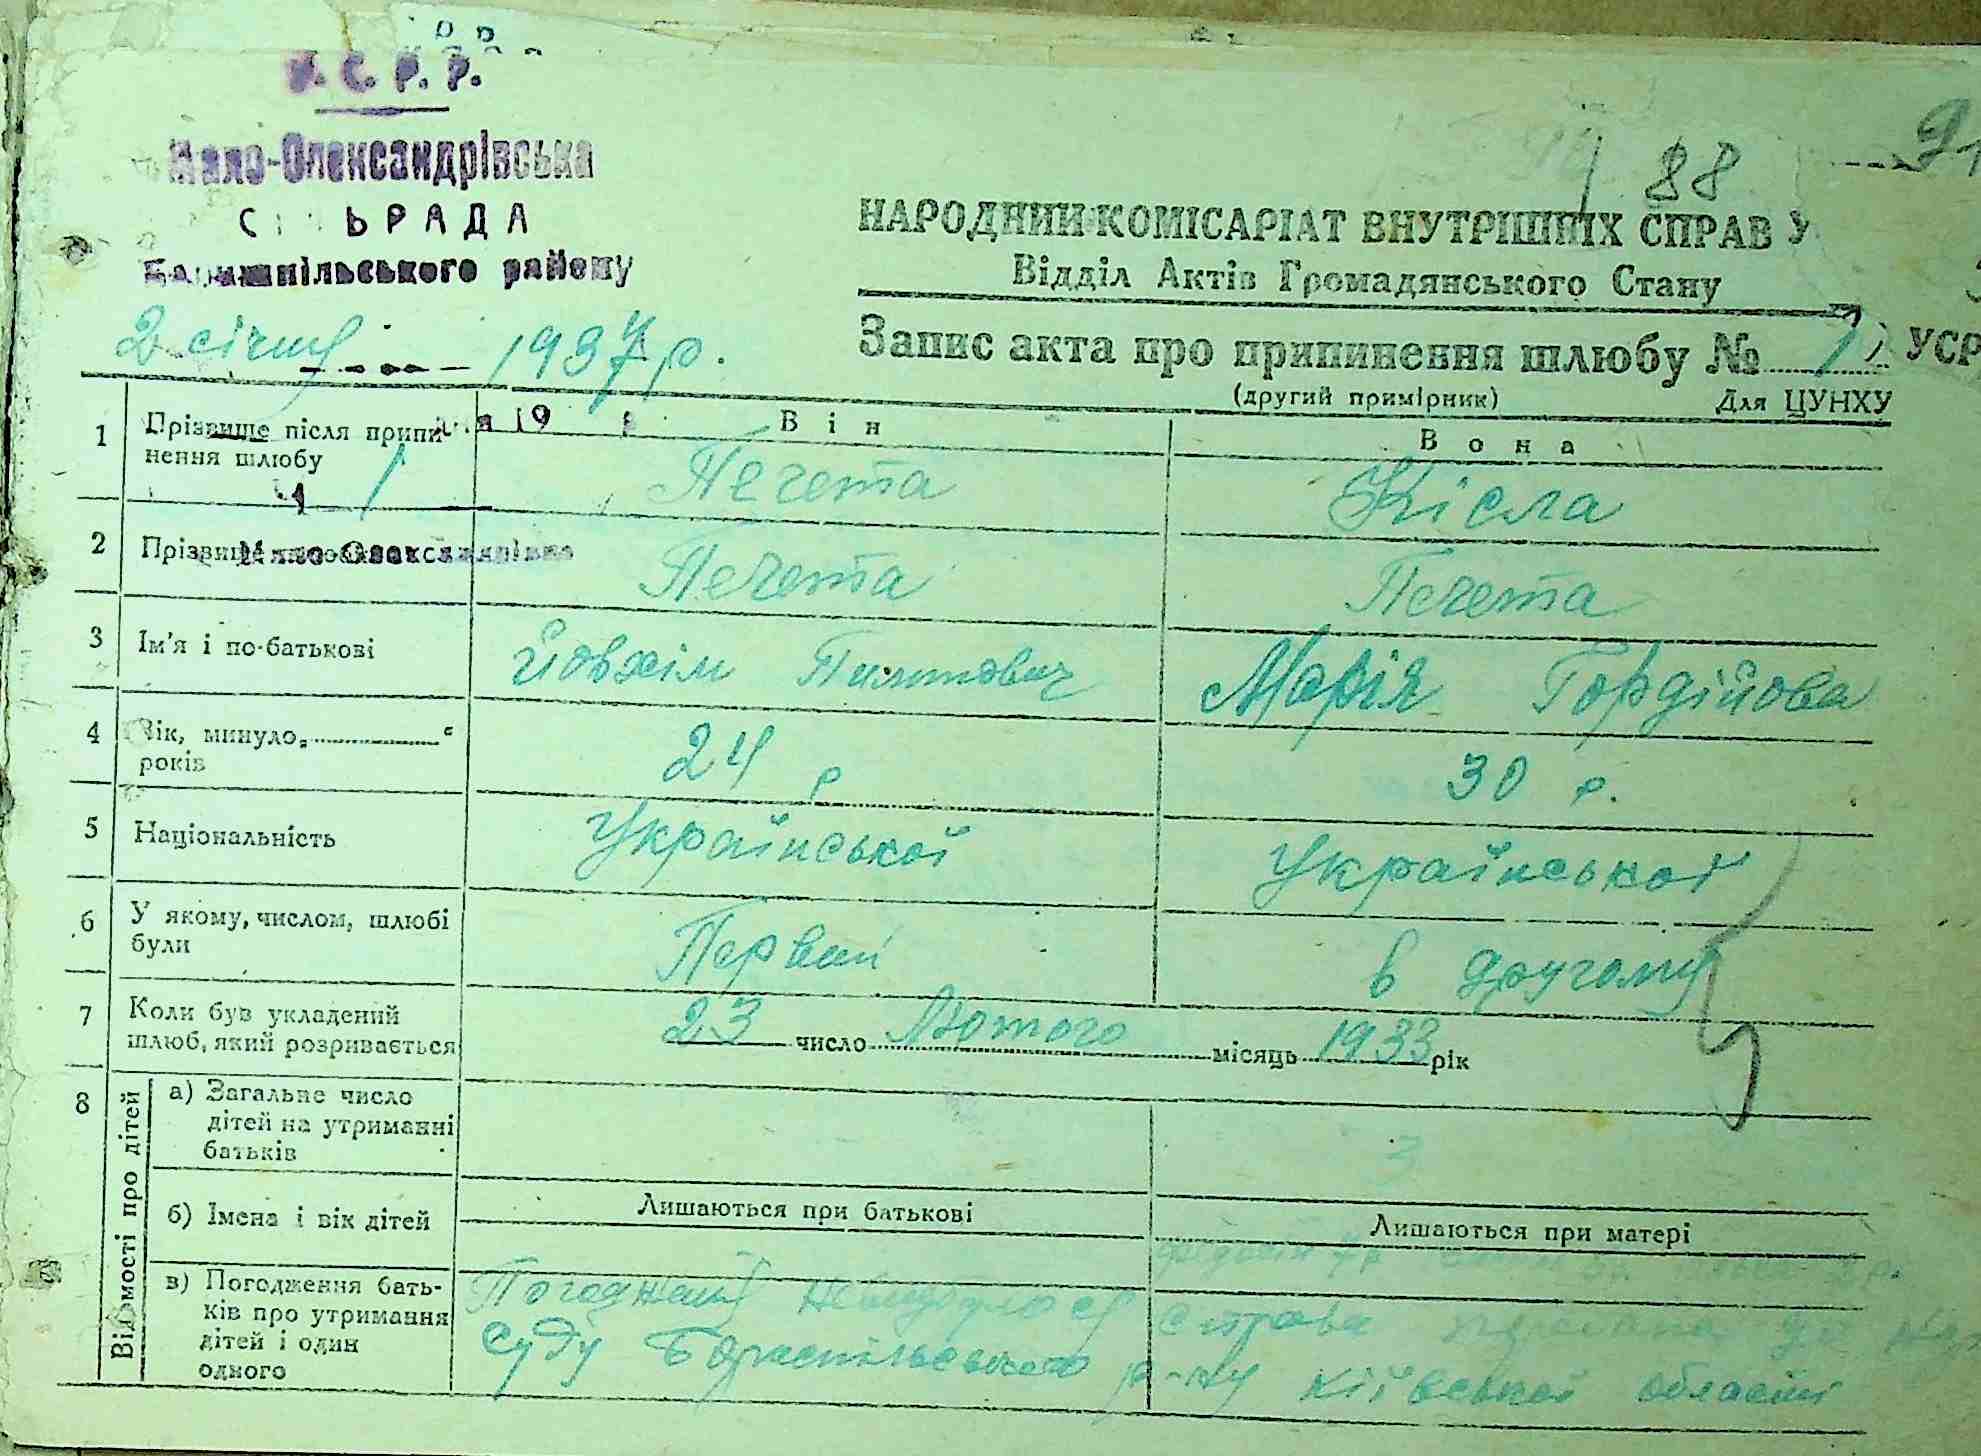 У.С.Р.Р.
Мало-Олександрівська
СІЛЬРАДА
Баришпільського району
88
НАРОДНИЙ КОМІСАРІАТ ВНУТРІШНІХ СПРАВ У
Відділ Актів Громадянського Стану
2 січня 1937 р.
Запис акта про припинення шлюбу № 1 УСР
(другий примірник) Для ЦУНХУ
1 Прізвище після припинення шлюбу
Він
Вона
Печета
Кісла
2 Прізвище
Мало Олександрівка
Печета
Печета
3 Ім'я і по-батькові
Йовхім Пилипович
Марія Гордійова
4 Вік, минуло
років
24 р
30 р.
5 Національність
Української
Української
6 У якому, числом, шлюбі
були
Первий
в другому
7 Коли був укладений
шлюб, який розривається
23 число Лютого місяць 1933 рік
8 Відомості про дітей
а) Загальне число
дітей на утриманні
батьків
3
б) Імена і вік дітей
Лишаються при батькові
Лишаються при матері
в) Погодження бать-
ків про утримання
дітей і один
одного
Справа
суду Бориспільського р-ну Київської області